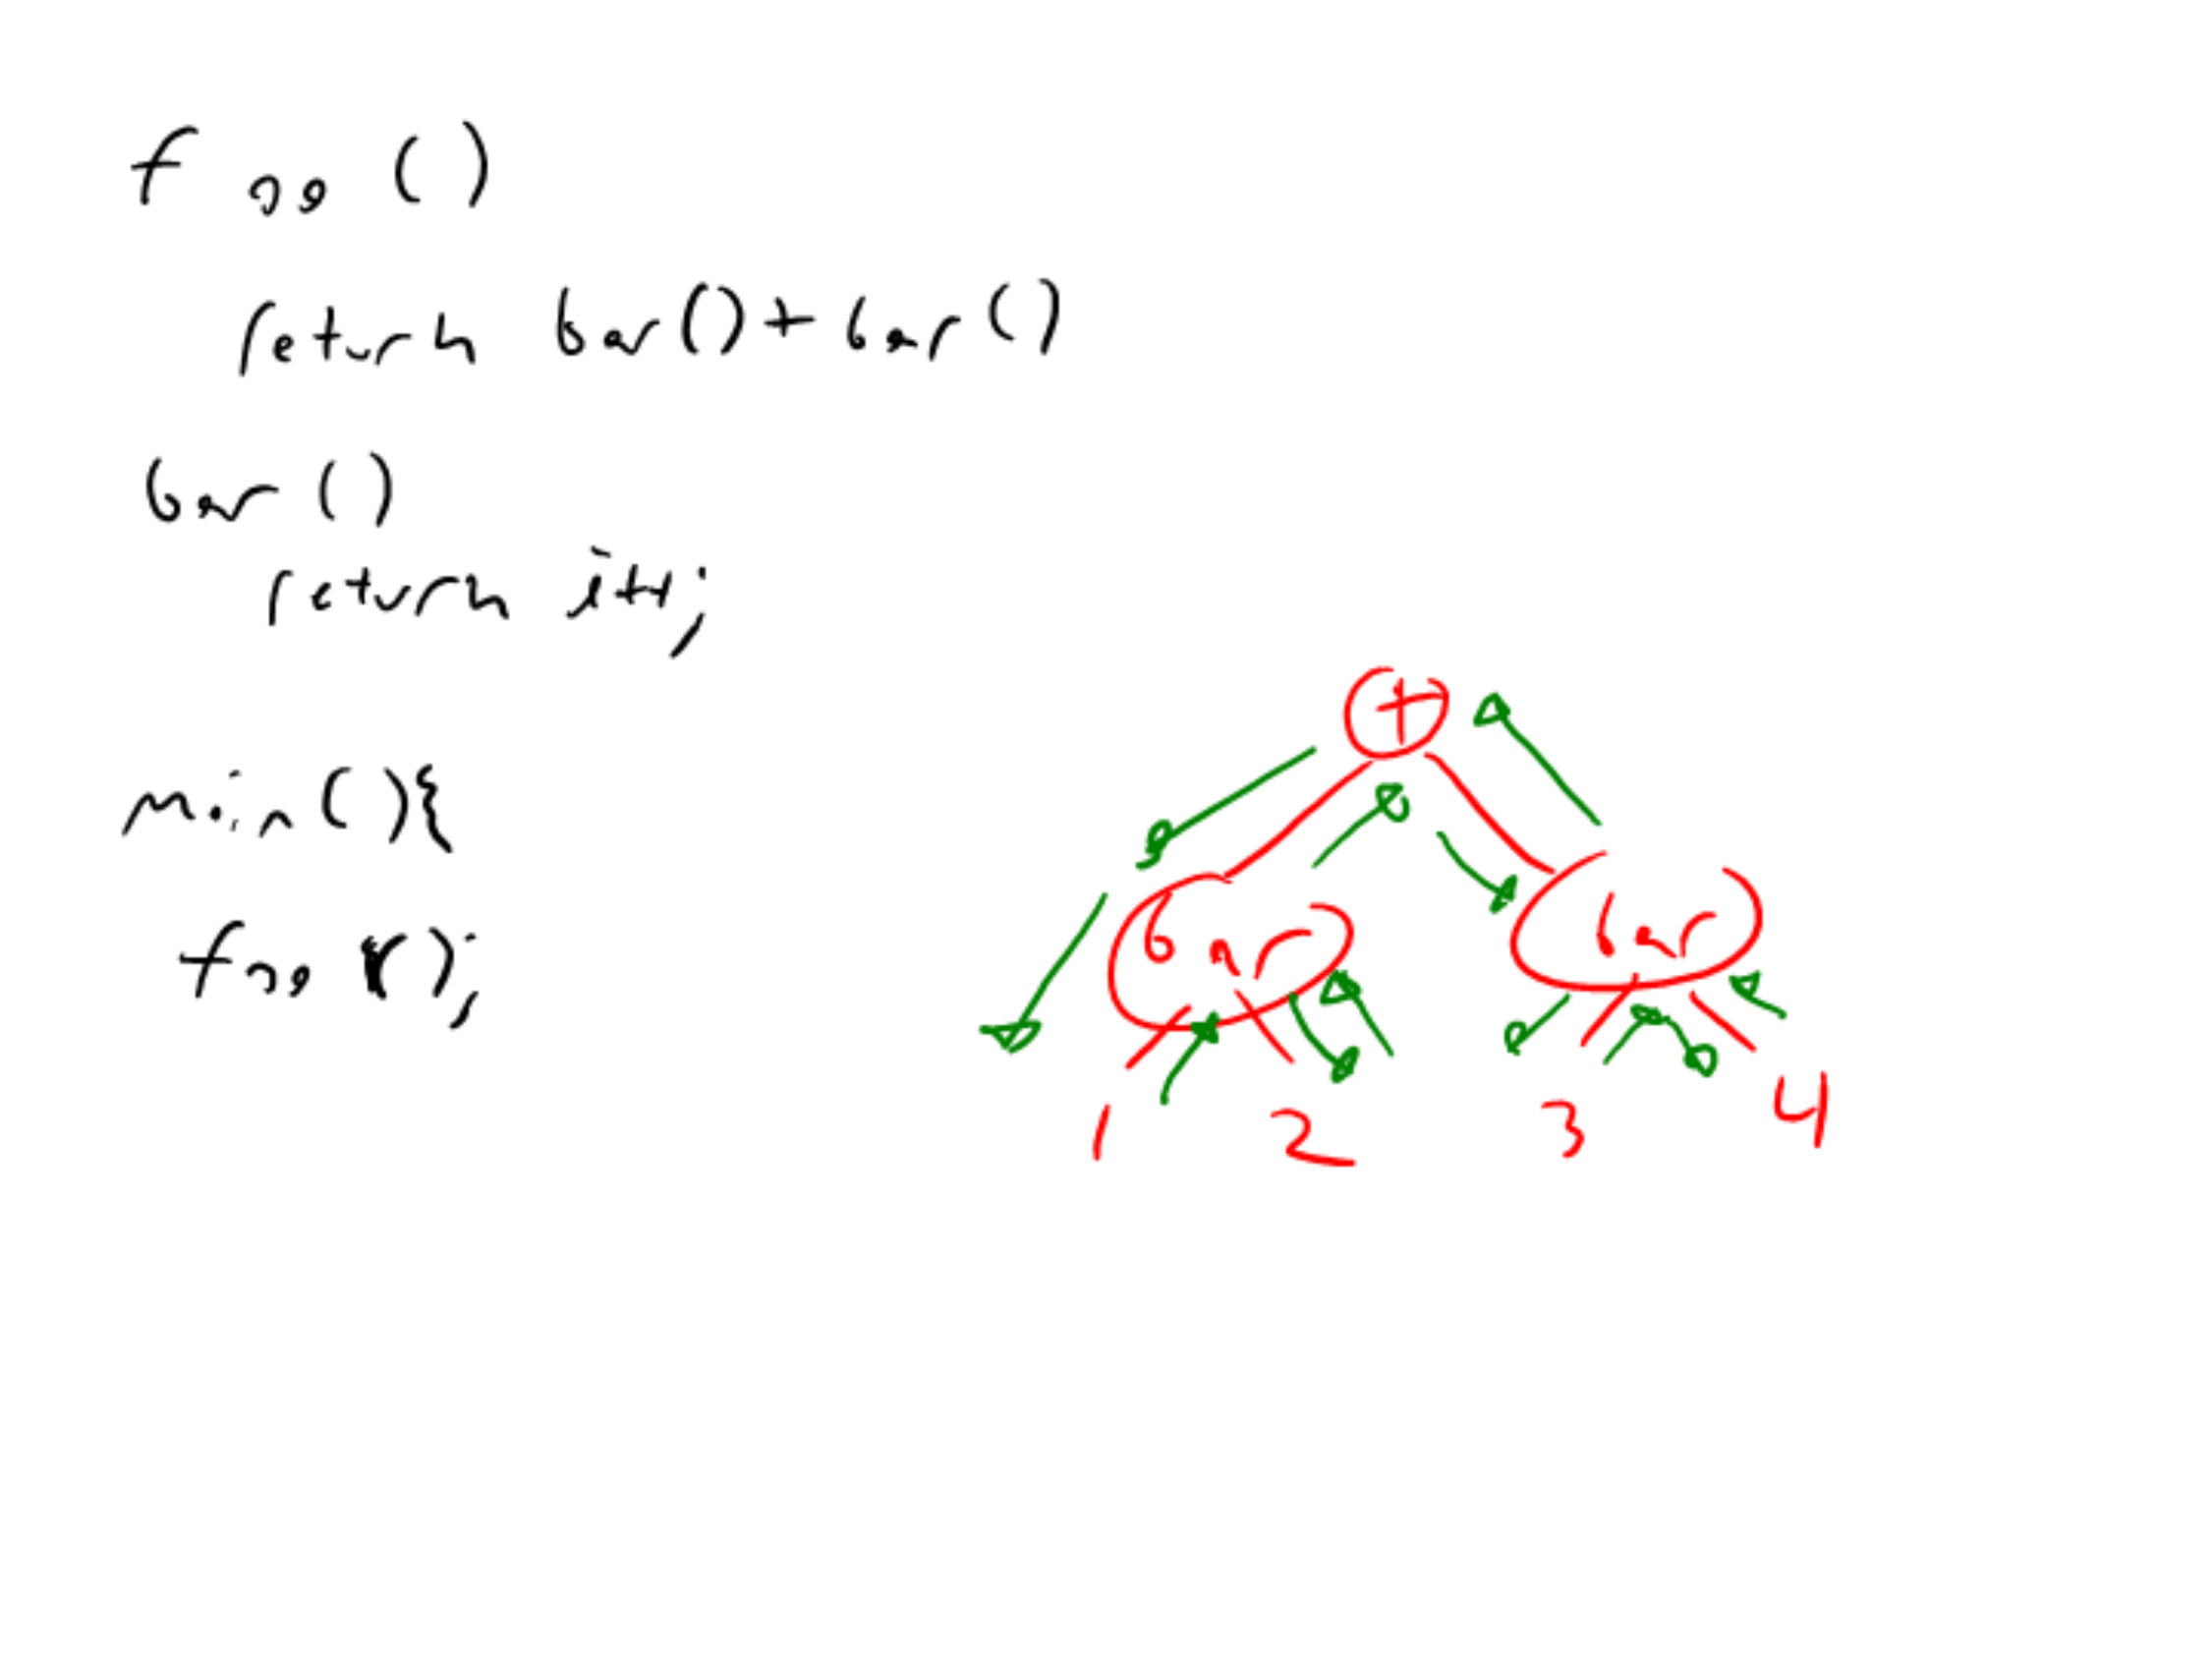 foo()
return bar() + bar()
bar()
return i++;
main(){
foo();
+
bar bar
1 2 3 4